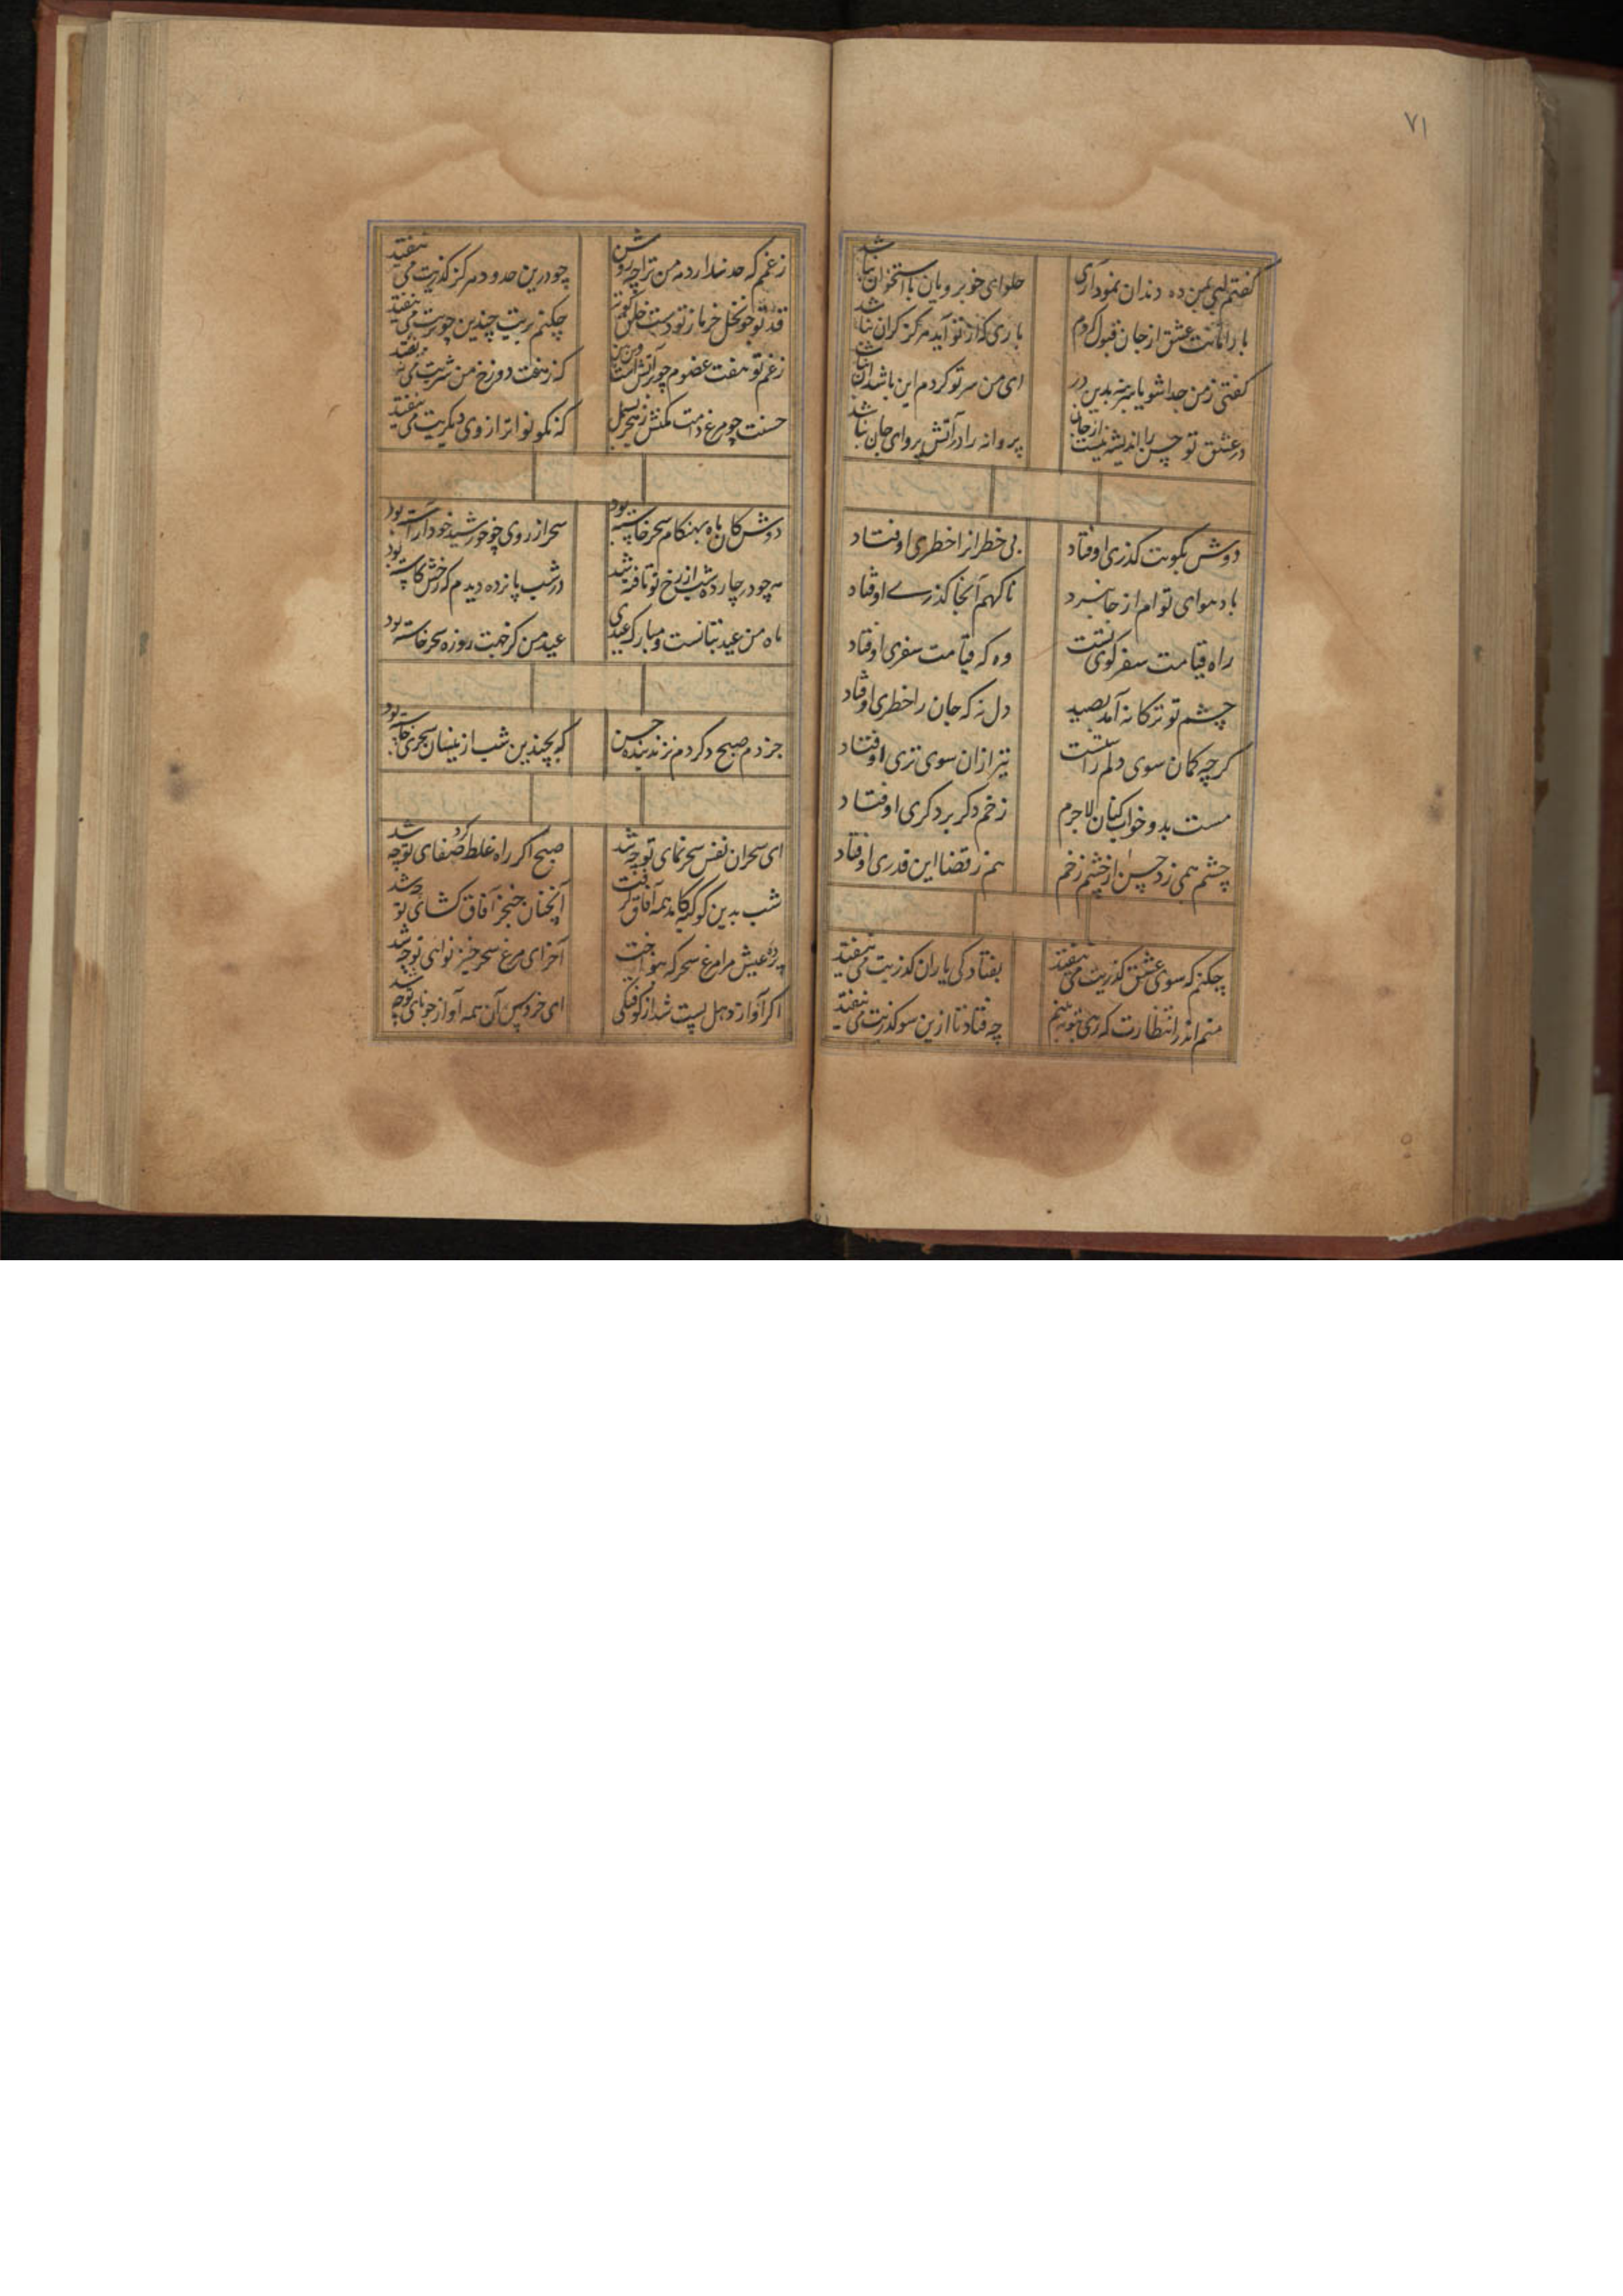 ۷۱
گفتم لبی بمن ده دندان نمود آری حلوای خوبرویان با استخوان نباشد
بار امانت عشق از جان قبول کردم باری که از تو آید هرگز گران نباشد
گفتی ز من جدا شو یا سر بنه بدین در ای من سر تو گردم این باشد آن نباشد
در عشق تو حسن را اندیشه نیست از جان پروانه را در آتش پروای جان نباشد
دوش بکویت گذری اوفتاد بی خطر انرا خطری اوفتاد
باد هوای توام از جا ببرد ناگهم آنجا گذری اوفتاد
راه قیامت سفر کوی تست وه که قیامت سفری اوفتاد
چشم تو ترکانه آمد بصید دل نه که جان را خطری اوفتاد
گرچه کمان سوی دلم راست تیر از ان سوی تری اوفتاد
مست بد و خواب کنان لاجرم زخم دگر بر دگری اوفتاد
چشم همی زد حسن از چشم زخم هم ز قضا این قدری اوفتاد
چکنم که سوی عشق گذریت می نیفتد بفتادگی یاران گذریت می نیفتد
منم اندر انتظارت که رهی بتو ببینم چه فتاد تا ازین سو گذریت می نیفتد
ز غم که حد ندارد مه من ترا چه روشن چو درین حدود هرگز گذریت می نیفتد
قد تو چو نخل خرما ز تو دست خلق کوته چکنم بریت چندین چو بریت می نیفتد
ز غم تو هفت عضوم چو در آتش است که ز هفت دوزخ من شریت می نیفتد
حسنت چو مرغ دامت مکنش ز هجر بسمل که نکو نواتر از وی دگریت می نیفتد
دوش کان ماه بهنگام سحر خاسته بود سحر از روی چو خورشید خود آراسته بود
مه چو در چارده شب از رخ تو تافته شد در شب پانزده دیدم که رخش کاسته بود
ماه من عید بتانست و مبارک عیدی عید من کز جهت روزه سحر خاسته بود
جز دم صبح دگر دم نزند بنده حسن که بچندین شب از ینسان سحری خاسته بود
ای سحر ان نفس سحر نمای تو چه شد صبح اگر راه غلط کرد صفای تو چه شد
شب بدین کوکبه کامد همه آفاق گرفت آنچنان خنجر آفاق کشای تو چه شد
پرده عیش مرا مرغ سحرگه بنواخت آخر ای مرغ سحر خیز نوای تو چه شد
اگر آواز دهل پست شد از کوفتگی ای خروس آن همه آواز چو نای تو چه شد